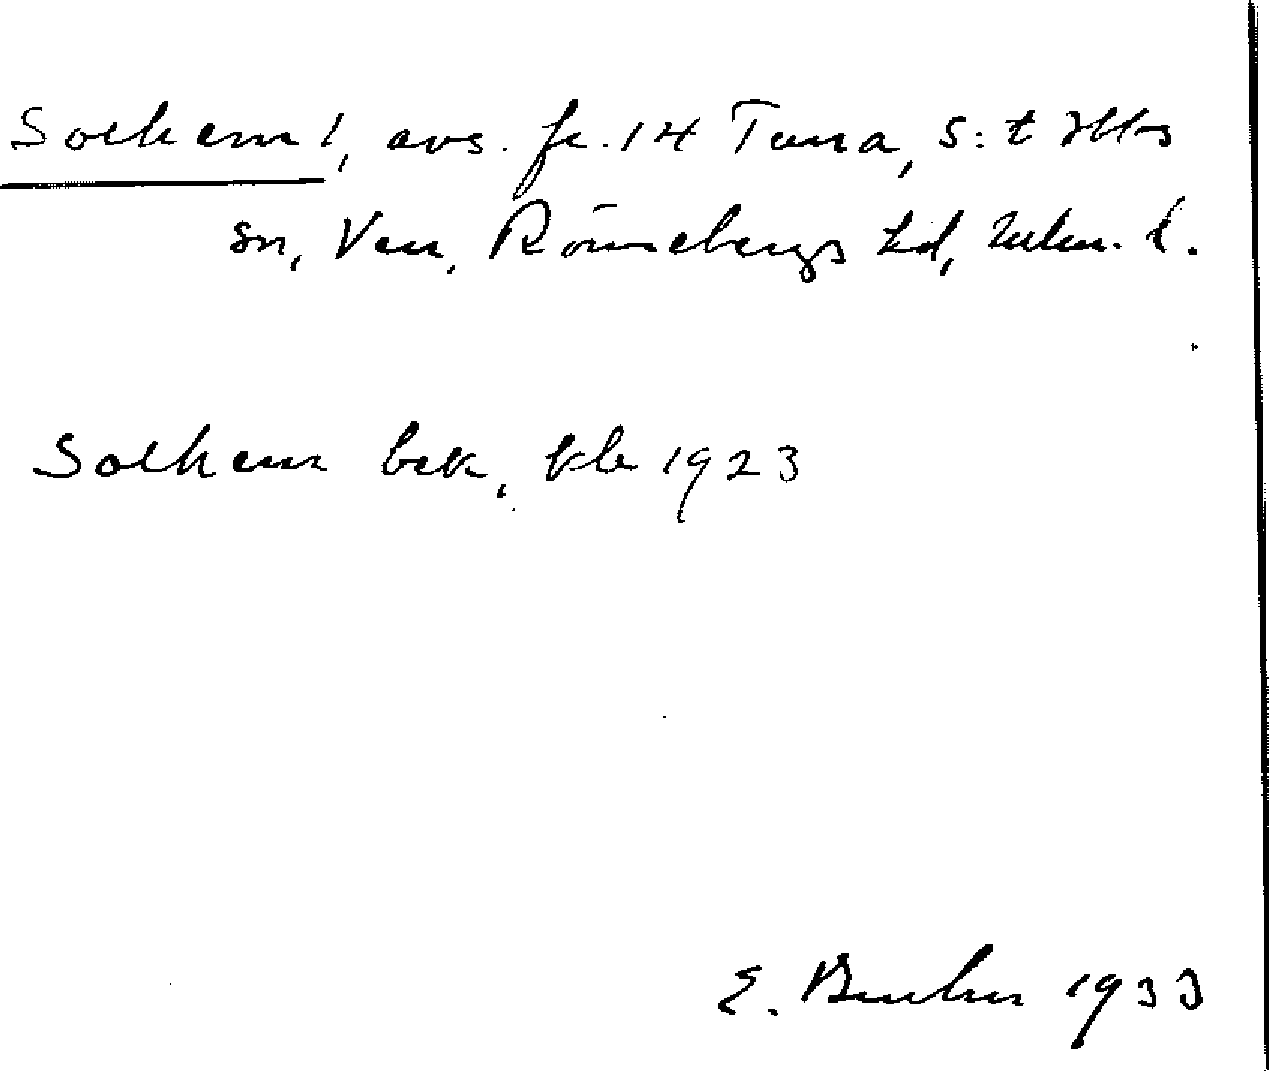 Solhem 1, avs. fr. 14 Tuna, S:t Ills
sn, Ven, Rönnebergs hd, Malm. l.
Solhem bek, kb 1923
E. 1933